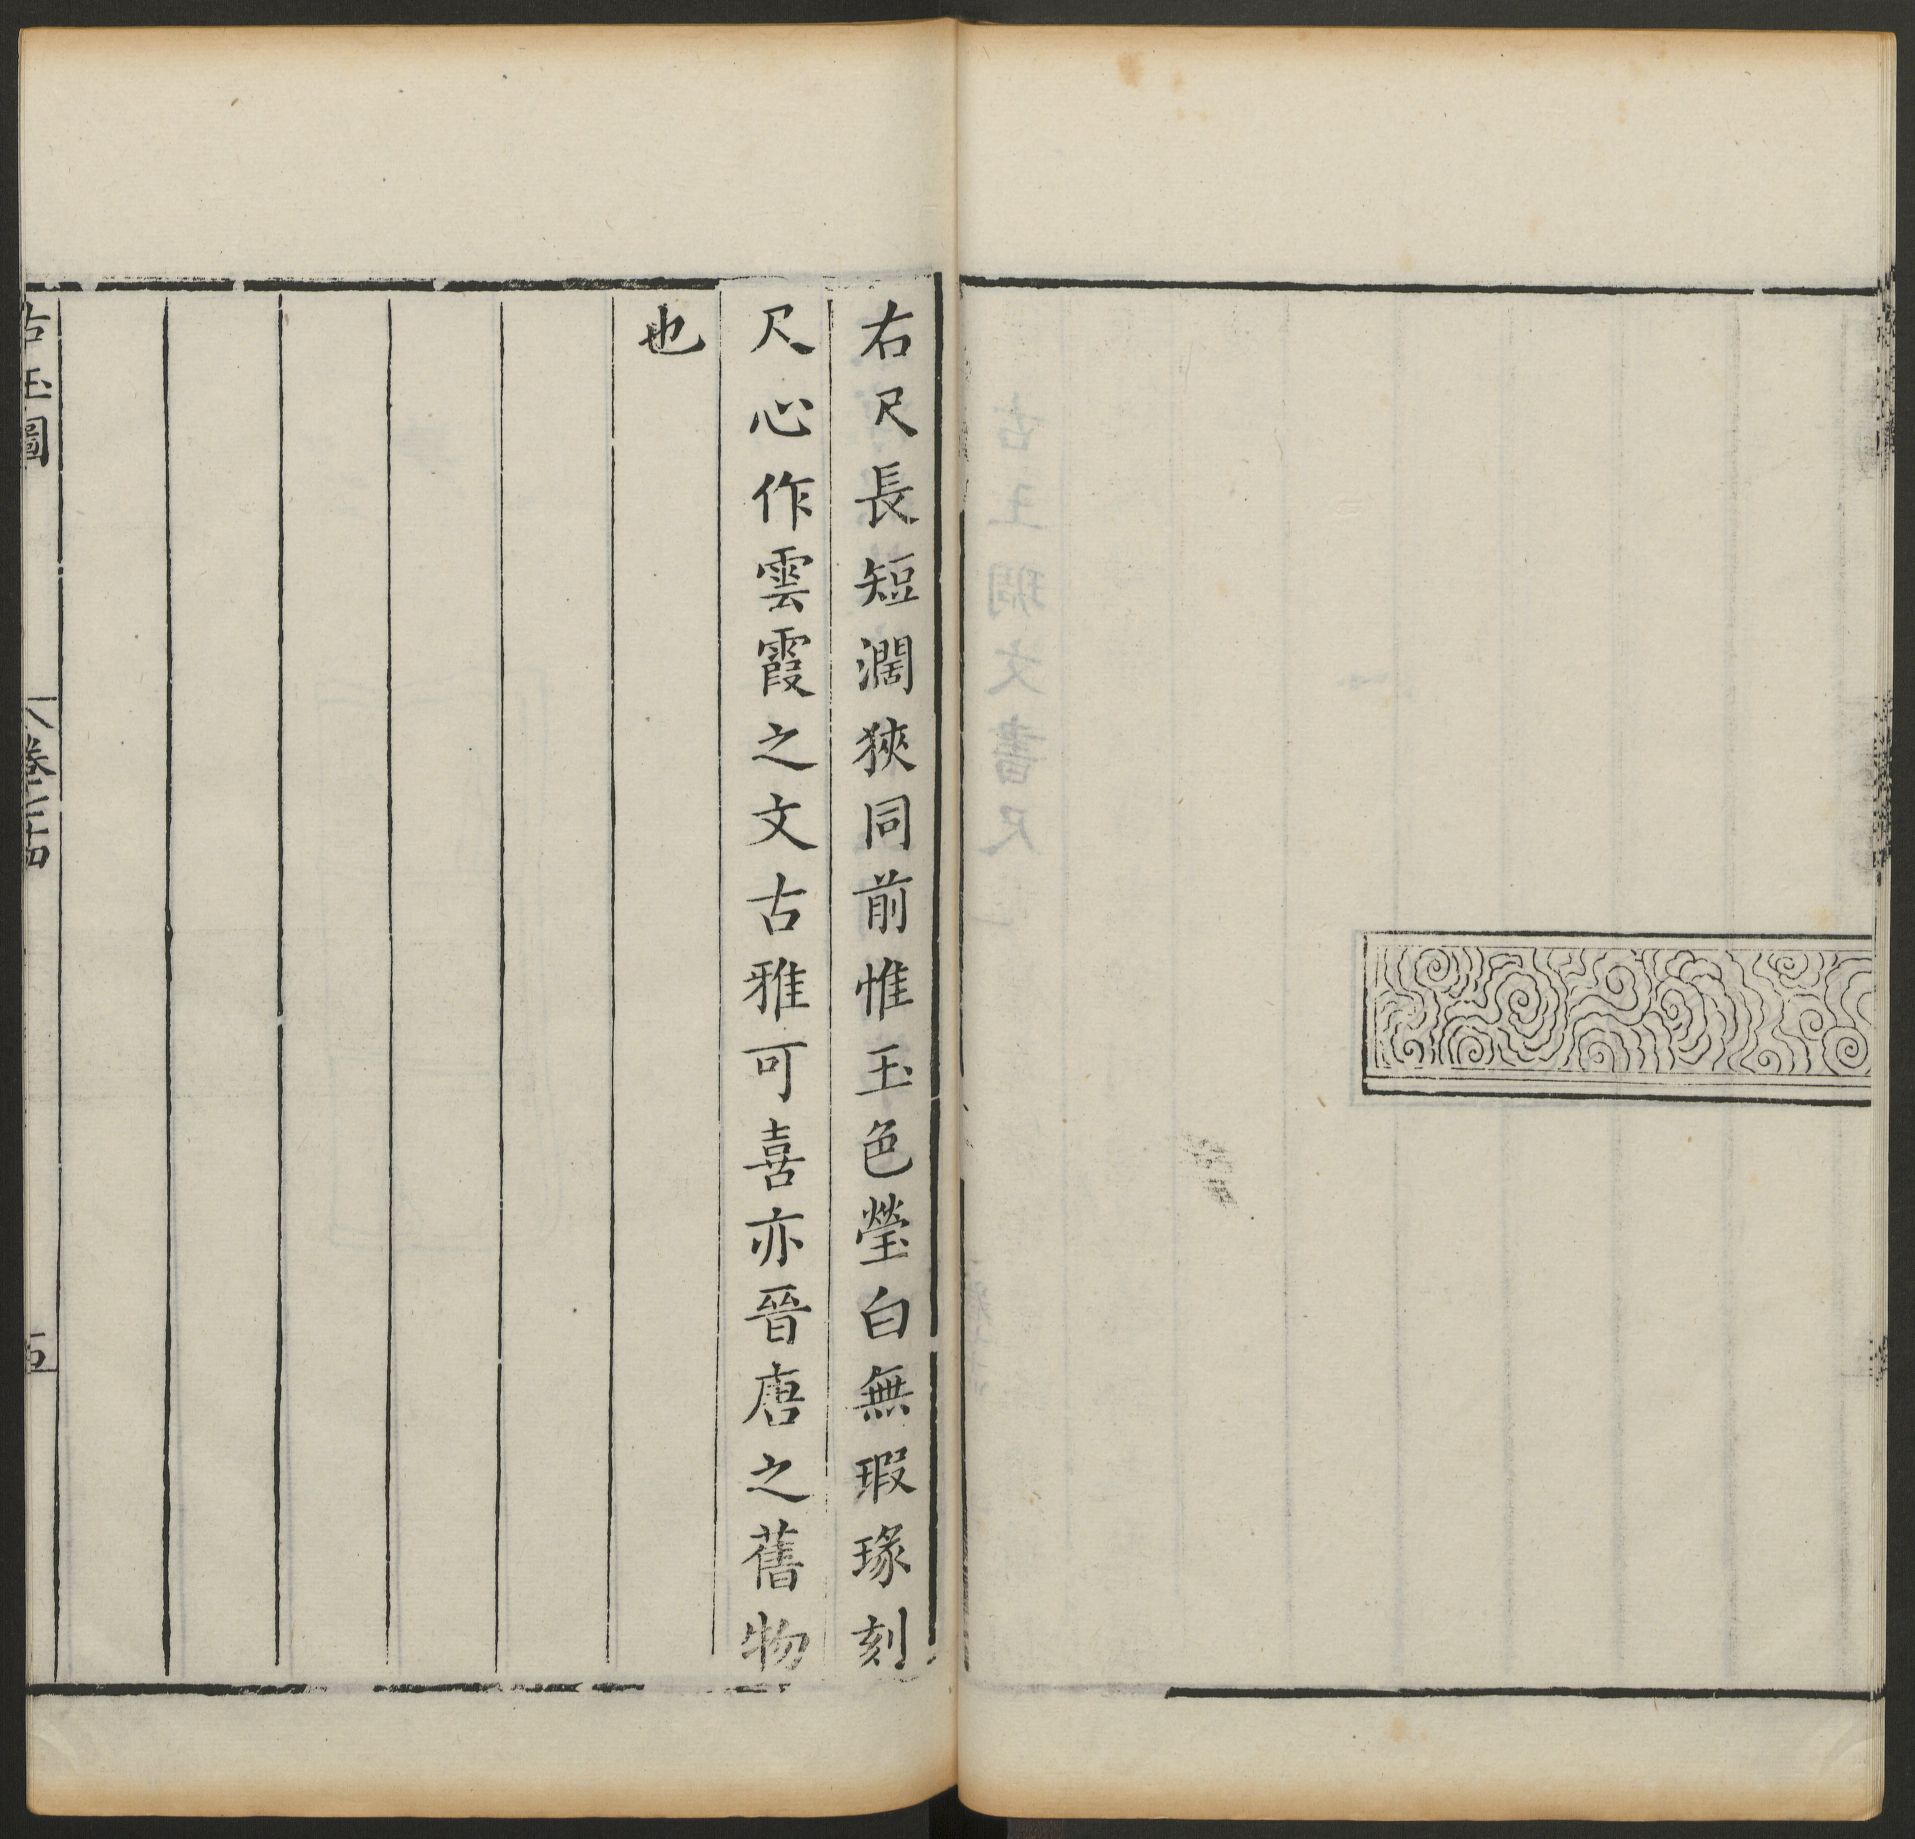 右尺長短濶狹同前惟玉色瑩白無瑕瑑刻
尺心作雲霞之文古雅可喜亦晉唐之舊物
也
古玉圖
卷之十四
五